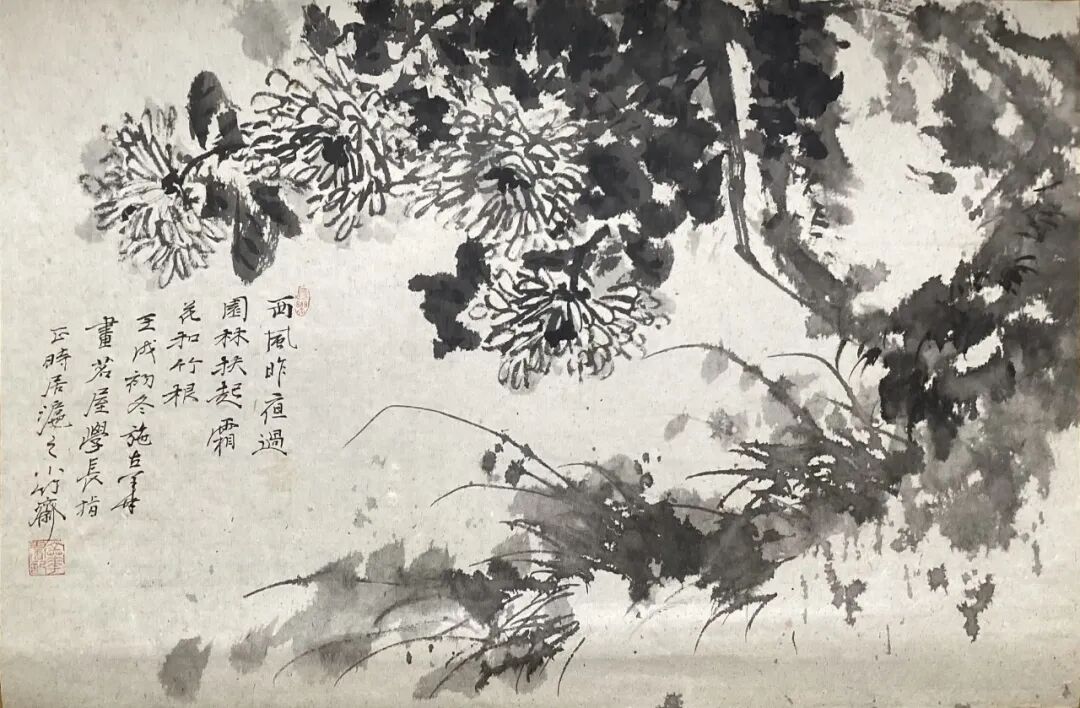 西風昨夜過
園林扶起霜
花和竹根
壬戌初冬施
畫茗屋學長指
正時居滬之小竹齋